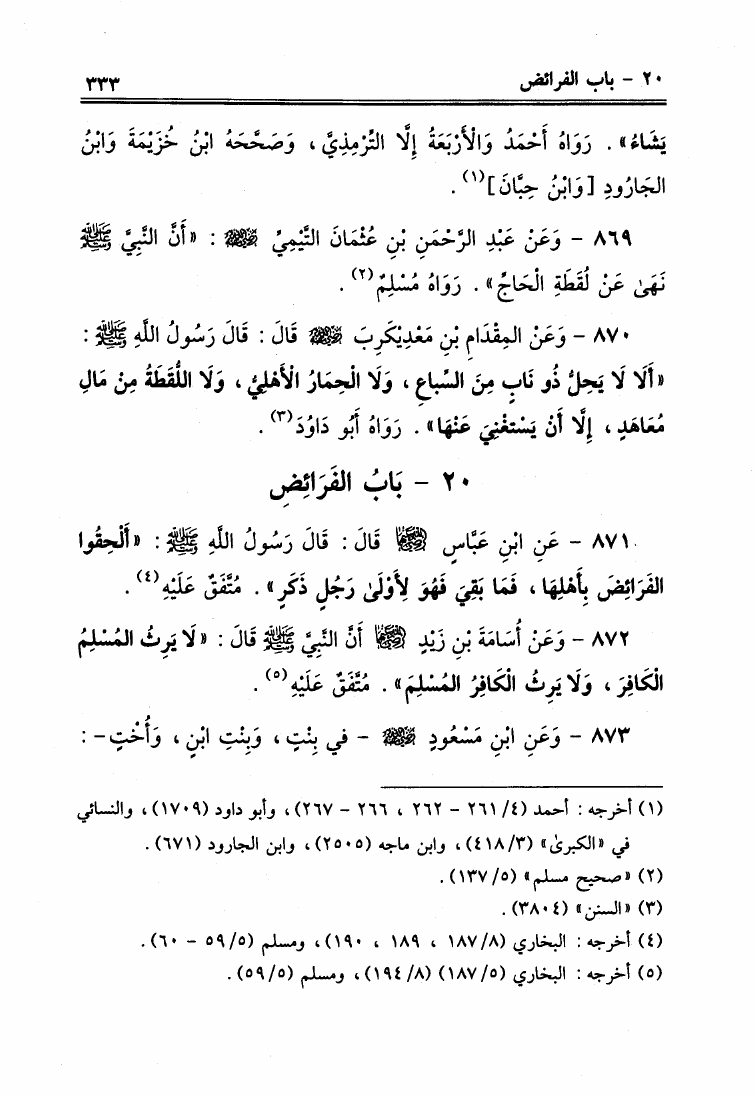 ٢٠ - باب الفرائض ٣٣٣
يَشَاءُ» . رَوَاهُ أَحْمَدُ وَالْأَرْبَعَةُ إِلَّا التِّرْمِذِيَّ ، وَصَحَّحَهُ ابْنُ خُزَيْمَةَ وَابْنُ
الجَارُودِ [وَابْنُ حِبَّانَ](١) .
٨٦٩ - وَعَنْ عَبْدِ الرَّحْمَنِ بْنِ عُثْمَانَ التَّيْمِيِّ رضي الله عنه : «أَنَّ النَّبِيَّ ﷺ
نَهَىٰ عَنْ لُقَطَةِ الْحَاجِّ» . رَوَاهُ مُسْلِمٌ(٢) .
٨٧٠ - وَعَنِ المِقْدَامِ بْنِ مَعْدِيْكَرِبَ رضي الله عنه قَالَ : قَالَ رَسُولُ اللَّهِ ﷺ :
«أَلَا لَا يَحِلُّ ذُو نَابٍ مِنَ السِّبَاعِ ، وَلَا الْحِمَارُ الْأَهْلِيُّ ، وَلَا اللُّقَطَةُ مِنْ مَالِ
مُعَاهَدٍ ، إِلَّا أَنْ يَسْتَغْنِيَ عَنْهَا» . رَوَاهُ أَبُو دَاوُدَ(٣) .
٢٠ - بَابُ الفَرَائِضِ
٨٧١ - عَنِ ابْنِ عَبَّاسٍ رضي الله عنهما قَالَ : قَالَ رَسُولُ اللَّهِ ﷺ : «أَلْحِقُوا
الفَرَائِضَ بِأَهْلِهَا ، فَمَا بَقِيَ فَهُوَ لِأَوْلَىٰ رَجُلٍ ذَكَرٍ» . مُتَّفَقٌ عَلَيْهِ(٤) .
٨٧٢ - وَعَنْ أُسَامَةَ بْنِ زَيْدٍ رضي الله عنهما أَنَّ النَّبِيَّ ﷺ قَالَ : «لَا يَرِثُ المُسْلِمُ
الْكَافِرَ ، وَلَا يَرِثُ الْكَافِرُ المُسْلِمَ» . مُتَّفَقٌ عَلَيْهِ(٥) .
٨٧٣ - وَعَنِ ابْنِ مَسْعُودٍ رضي الله عنه - في بِنْتٍ ، وَبِنْتِ ابْنٍ ، وَأُخْتٍ - :
(١) أخرجه : أحمد (٤/ ٢٦١ - ٢٦٢ ، ٢٦٦ - ٢٦٧)، وأبو داود (١٧٠٩)، والنسائي
في «الكبرىٰ» (٣/ ٤١٨)، وابن ماجه (٢٥٠٥)، وابن الجارود (٦٧١) .
(٢) «صحيح مسلم» (٥/ ١٣٧) .
(٣) «السنن» (٣٨٠٤) .
(٤) أخرجه : البخاري (٨/ ١٨٧ ، ١٨٩ ، ١٩٠)، ومسلم (٥/ ٥٩ - ٦٠) .
(٥) أخرجه : البخاري (٥/ ١٨٧) (٨/ ١٩٤)، ومسلم (٥/ ٥٩) .